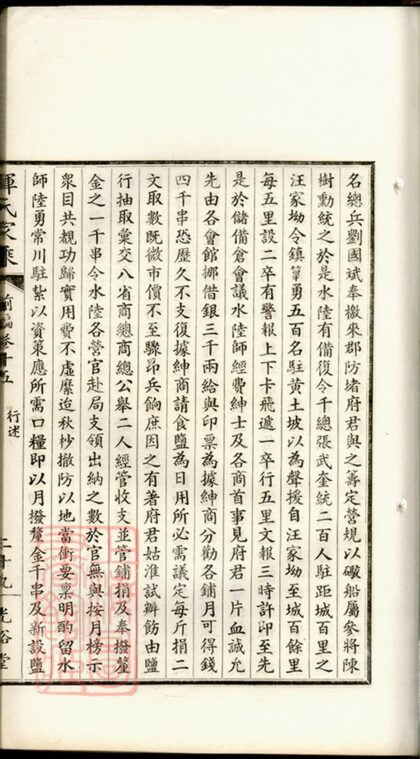 名總兵劉國斌奉檄來郡防堵府君與之籌定營規以礟船屬參將陳
樹勳統之於是水陸有備復令千總張武奎統二百人駐距城百里之
汪家坳令鎮筸勇五百名駐黃土坡以為聲援自汪家坳至城百餘里
每五里設二卒有警報上下卡飛遞一卒行五里文報三時許即至先
是於儲備倉會議水陸師經費紳士及各商首事見府君一片血誠允
先由各會館挪借銀三千兩給與印票為據紳商分勸各鋪月可得錢
四千串恐歷久不支復據紳商請食鹽為日用所必需議定每斤捐二
文取數既微市價不至驟昂兵餉庶因之有著府君姑准試辦飭由鹽
行抽取彙交八省商總商總公舉二人經管收支並管鋪捐及奉撥釐
金之一千串令水陸各營官赴局支領出納之數於官無與按月榜示
眾目共覩功歸實用費不虛縻迨秋杪撤防以地當衝要稟明酌留水
師陸勇常川駐紮以資策應所需口糧即以月撥釐金千串及新設鹽
惲氏家乘
前編卷十五
行述
二十九
光裕堂